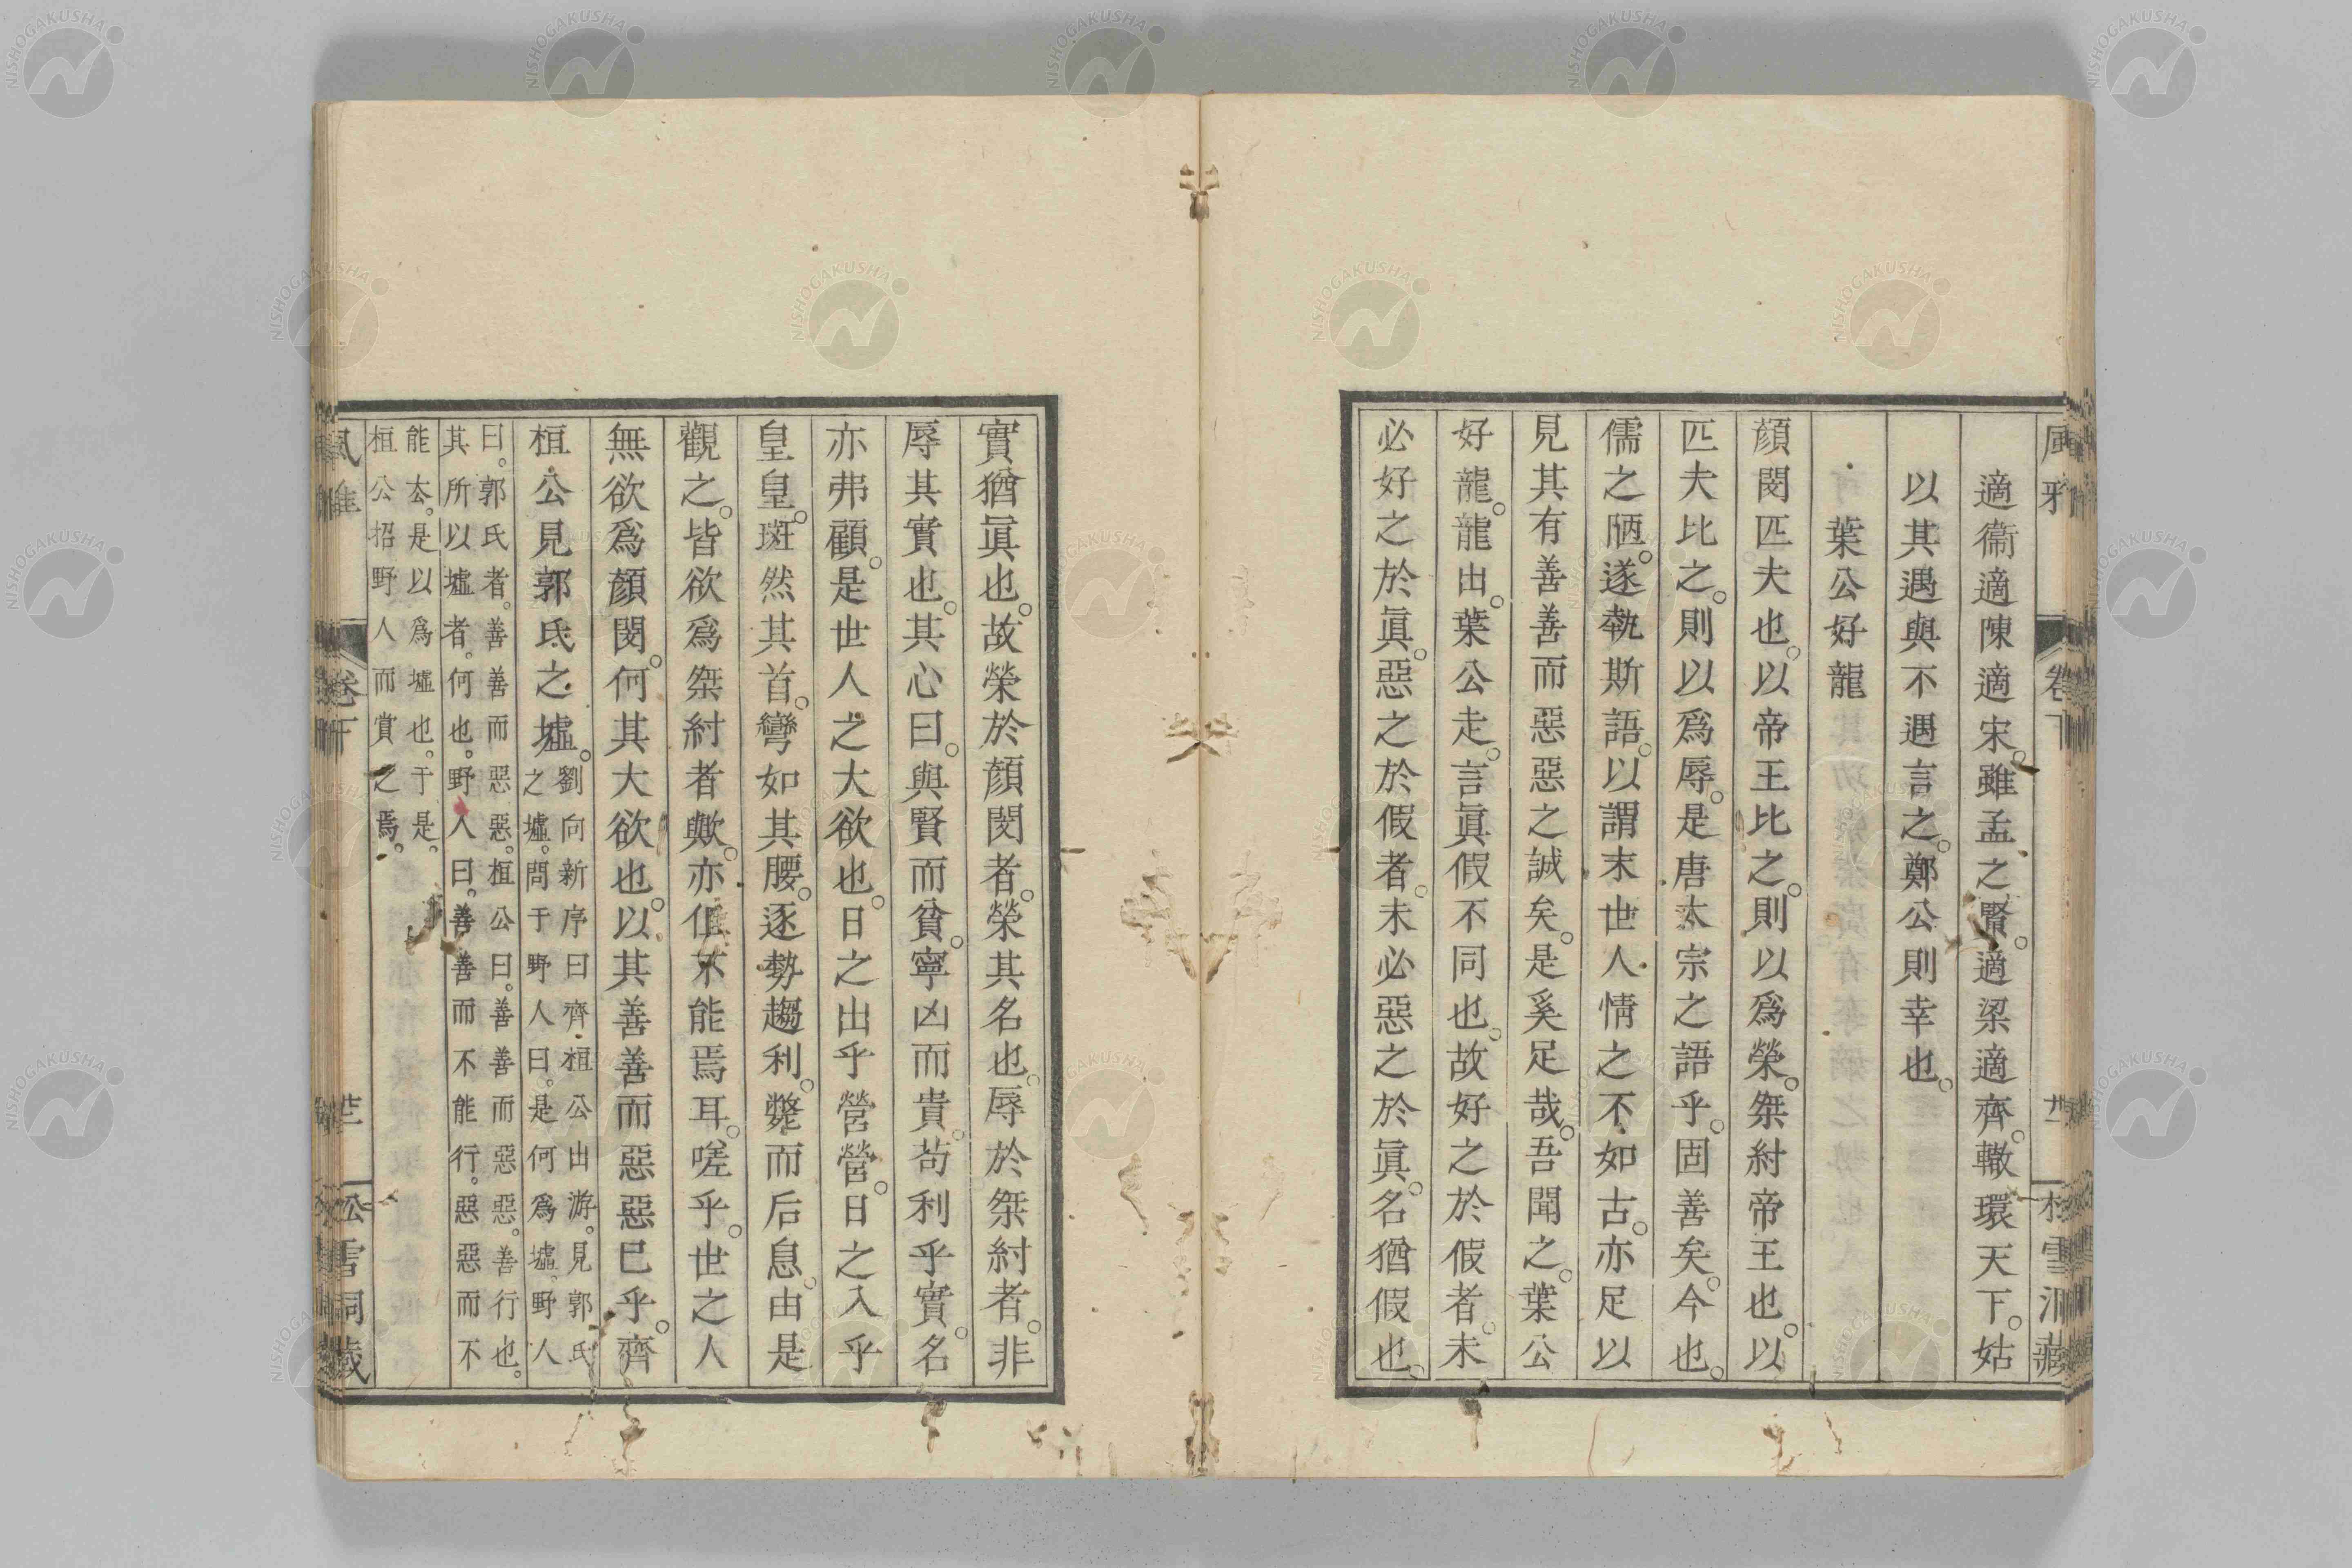 適衞適陳適宋。雖孟之賢。適梁適齊。轍環天下。姑
以其遇與不遇言之。鄭公則幸也。
葉公好龍
顏閔匹夫也。以帝王比之。則以爲榮。桀紂帝王也。以
匹夫比之。則以爲辱。是唐太宗之語乎。固善矣。今也。
儒之陋。遂執斯語。以謂末世人情之不如古。亦足以
見其有善善而惡惡之誠矣。是奚足哉。吾聞之。葉公
好龍。龍出。葉公走。言眞假不同也。故好之於假者。未
必好之於眞。惡之於假者。未必惡之於眞。名猶假也。
實猶眞也。故榮於顏閔者。榮其名也。辱於桀紂者。非
辱其實也。其心曰。與賢而貧。寧凶而貴。苟利乎實。名
亦弗顧。是世人之大欲也。日之出乎營營。日之入乎
皇皇。斑然其首。彎如其腰。逐勢趨利。斃而后息。由是
觀之。皆欲爲桀紂者歟。亦但不能焉耳。嗟乎。世之人
無欲爲顏閔。何其大欲也。以其善善而惡惡已乎。齊
桓公見郭氏之墟。劉向新序曰齊桓公出游。見郭氏
之墟。問于野人曰。是何爲墟。野人
曰。郭氏者。善善而惡惡。桓公曰。善善而惡惡。善行也。
其所以墟者。何也。野人曰。善善而不能行。惡惡而不
能去。是以爲墟也。于是。
桓公招野人而賞之焉。
風雅 卷下 松雪洞藏